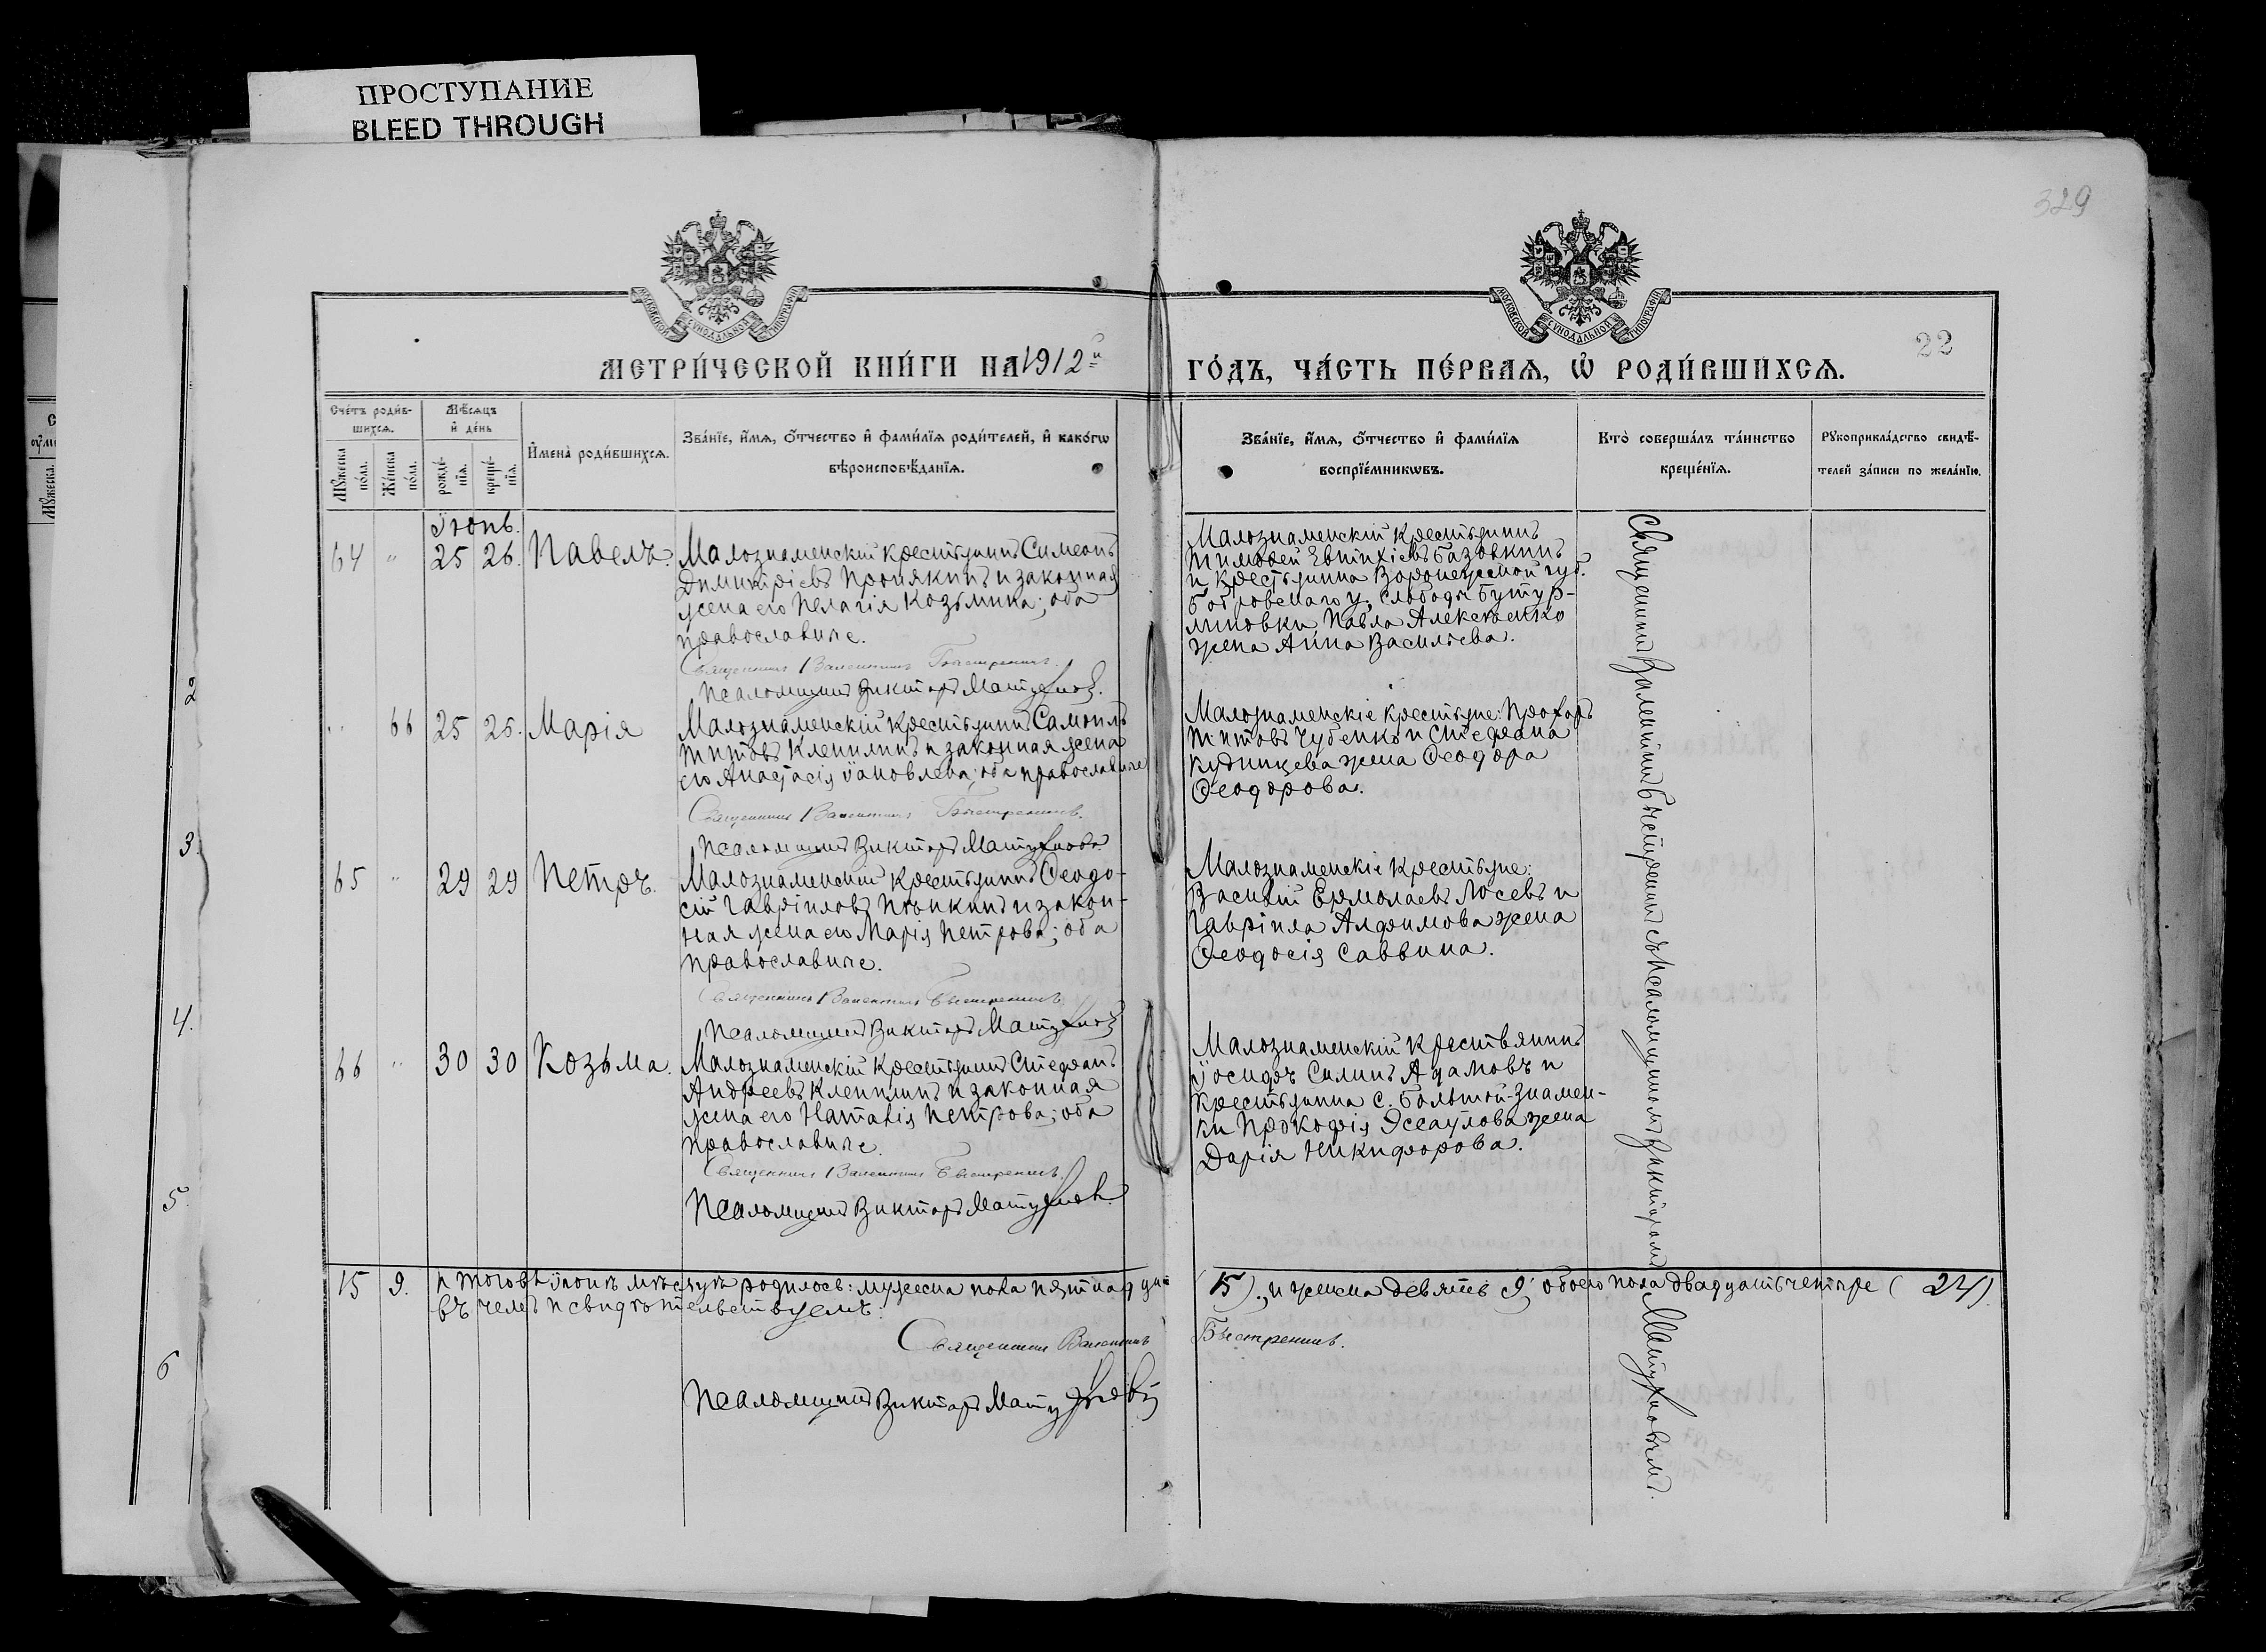 ПРОСТУПАНИЕ
BLEED THROUGH
329
МОСКОВСКОЙ СѴНОДАЛЬНОЙ ТИПОГРАФІИ
МОСКОВСКОЙ СѴНОДАЛЬНОЙ ТИПОГРАФІИ
22
МЕТРИ́ЧЕСКОЙ КНИ́ГИ НА 1912й
ГО́ДЪ, ЧА́СТЬ ПЕ́РВАЯ, Ѡ РОДИ́ВШИХСЯ.
Сче́тъ роди́в-
шихся.
Мѣ́сяцъ
и де́нь
Мꙋ́жеска
по́ла.
Же́нска
по́ла.
рожде́-
нїя.
креще́-
нїя.
Имена̀ роди́вшихся.
Зва́нїе, и́мя, о́тчество и фами́лїя роди́телей, и како́гѡ
вѣроисповѣ́данїя.
Зва́нїе, и́мя, о́тчество и фами́лїя
воспрїе́мникѡвъ.
Кто̀ соверша́лъ та́инство
креще́нїя.
Рꙋкоприкла́дство свидѣ́-
телей за́писи по жела́нїю.
Іюнь.
64 " 25 26. Павелъ.
Малознаменскій крестьянинъ Симеонъ
Димитріевъ Пронякинъ и законная
жена его Пелагія Козьмина; оба
православные.
Священникъ Валентинъ Быстренинъ.
Псаломщикъ Викторъ
Малознаменскій крестьянинъ
Тимоѳей Евтихіевъ Базовкинъ
и крестьянина Воронежской губ.
Бобровскаго у. слободы Бутур-
линовки Павла Алексѣенко
жена Анна Васильева.
" 66 25 25. Марія
Малознаменскій крестьянинъ Самоилъ
Титовъ Клепилинъ и законная жена
его Анастасія Іаковлева; оба православные
Священникъ Валентинъ Быстренинъ.
Псаломщикъ Викторъ
Малознаменскіе крестьяне: Прохоръ
Титовъ Чубенко и Стефана
Кудинцева жена Ѳеодора
Ѳеодорова.
65 " 29 29 Петръ.
Малознаменскій крестьянинъ Ѳеодо-
сій Гавріиловъ Пѣнкинъ и закон-
ная жена его Марія Петрова; оба
православные.
Священникъ Валентинъ Быстренинъ
Псаломщикъ Викторъ
Малознаменскіе крестьяне:
Василій Ермолаевъ Лосевъ и
Гавріила Алфимова жена
Ѳеодосія Саввина.
66 " 30 30 Козьма.
Малознаменскій крестьянинъ Стефанъ
Андреевъ Клепилинъ и законная
жена его Наталія Петрова; оба
православные.
Священникъ Валентинъ Быстренинъ.
Псаломщикъ Викторъ
Малознаменскій крестьянинъ
Іосифъ Силинъ Адамовъ и
крестьянина с. Большой-Знамен-
ки Прокофія Эссаулова жена
Дарія Никифорова.
Священникъ Валентинъ Быстренинъ съ псаломщикомъ Викторомъ
15 9. Итого въ Іюнѣ мѣсяцѣ родилось: мужеска пола пятнадца-
(15)., и женска девять 9; обоего пола двадцать четыре (24)
въ чемъ и свидѣтельствуемъ:
Священникъ Валентинъ
Быстренинъ.
Псаломщикъ Викторъ
2
3.
4.
5.
6